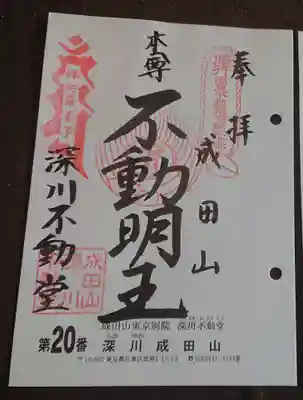 奉拝
成田山
本尊
不動明王
深川不動堂
成田山
深川
成田山東京別院 深川不動堂
第20番 深川成田山